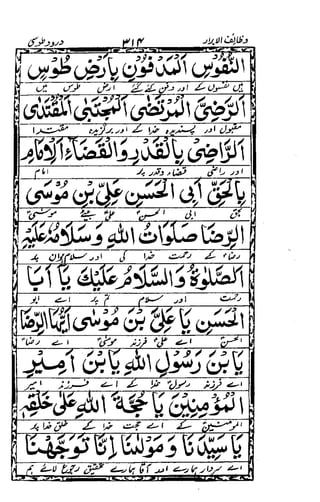 وظائف الابرار ۳۱۴ درود طوسی
النُّفُوْسِ الْمَدْفُوْنِ بِاَرْضِ طُوْسٍ
ہیں نفسوں کے اور دفن کئے گئے ارض طوس میں
الرَّضِيِّ الْمُرْتَضَى الْمُجْتَبَى الْمُقْتَدَى
مقبول اور پسندیدہ خدا کے اور برگزیدہ مقتدا
الرَّاضِيْ بِالْقَدْرِ وَالْقَضَاءِ الْاِمَامِ
اور راضی قضاء وقدر پر امام
بِالْحَقِّ اَبِي الْحَسَنِ عَلِيِّ بْنِ مُوْسَى
بحق ابی الحسن علی بیٹے موسیٰ
الرِّضَا صَلَوَاتُ اللهِ وَسَلَامُهُ عَلَيْهِ
رضاء کے رحمت خدا کی اور سلام ان پر
اَلصَّلٰوةُ وَالسَّلَامُ عَلَيْكَ يَا اَبَا
رحمت اور سلام تم پر اے ابو
الْحَسَنِ يَا عَلِيَّ بْنَ مُوْسَى اَيُّهَا الرِّضَا
الحسن اے علی فرزند موسیٰ اے رضا
يَا بْنَ رَسُوْلِ اللهِ يَا بْنَ اَمِيْرِ
اے فرزند رسول خدا کے اے فرزند امیر
الْمُؤْمِنِيْنَ يَا حُجَّةَ اللهِ عَلٰى خَلْقِهِ
المومنین کے اے حجت خدا کے خلق خدا پر
يَا سَيِّدَنَا وَمَوْلٰىنَا اِنَّا تَوَجَّهْنَا
اے سردار ہمارے اور آقا ہمارے تحقیق رجوع لائے ہم